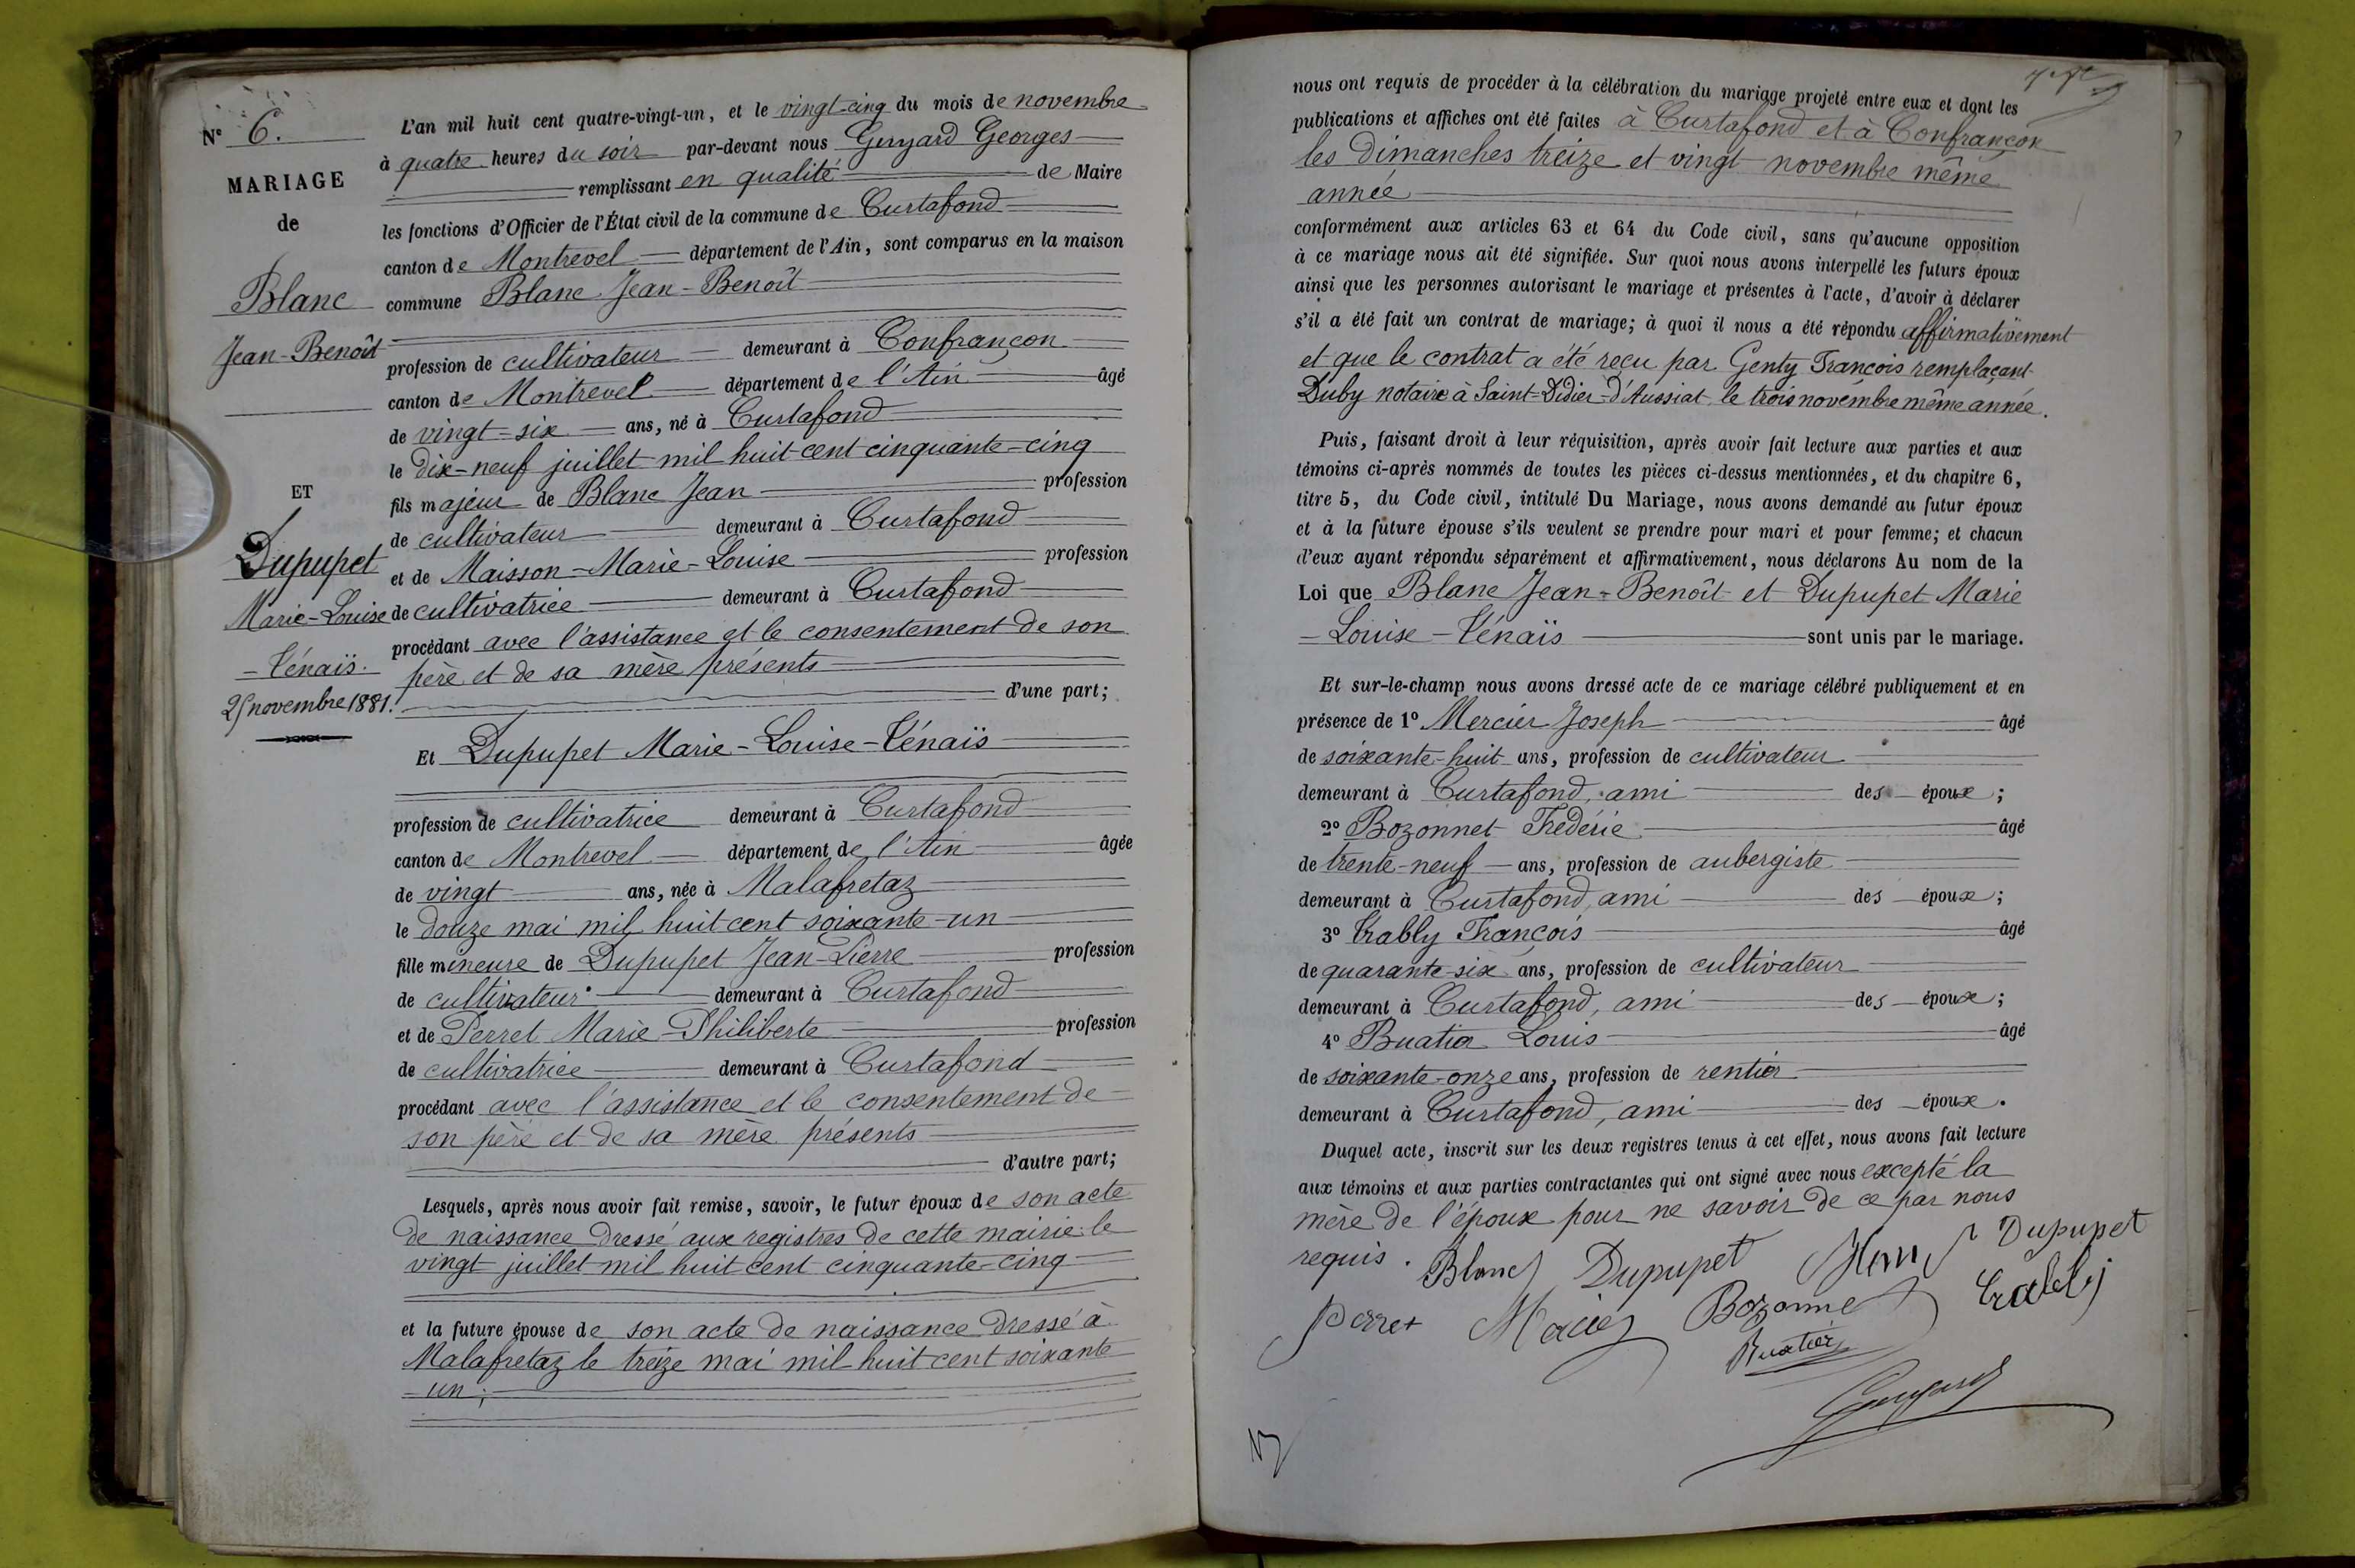 N° 6.
MARIAGE
de
Blanc
Jean-Benoît
ET
Dupupet
Marie-Louise
-Ténaïs.
25 novembre 1881.
L'an mil huit cent quatre-vingt-un, et le vingt-cinq du mois de novembre
à quatre heures du soir par-devant nous Guyard Georges
remplissant en qualité de Maire
les fonctions d'Officier de l'État civil de la commune de Curtafond
canton de Montrevel département de l'Ain, sont comparus en la maison
commune Blanc Jean-Benoît
profession de cultivateur demeurant à Confrançon
canton de Montrevel département de l'Ain âgé
de vingt-six ans, né à Curtafond
le dix-neuf juillet mil huit cent cinquante-cinq
fils majeur de Blanc Jean profession
de cultivateur demeurant à Curtafond
et de Maisson-Marie-Louise profession
de cultivatrice demeurant à Curtafond
procédant avec l'assistance et le consentement de son
père et de sa mère présents
d'une part;
Et Dupupet Marie-Louise-Ténaïs
profession de cultivatrice demeurant à Curtafond
canton de Montrevel département de l'Ain âgée
de vingt ans, née à Malafretaz
le douze mai mil huit cent soixante-un
fille mineure de Dupupet Jean-Pierre profession
de cultivateur demeurant à Curtafond
et de Perret Marie-Philiberte profession
de cultivatrice demeurant à Curtafond
procédant avec l'assistance et le consentement de
son père et de sa mère présents
d'autre part;
Lesquels, après nous avoir fait remise, savoir, le futur époux de son acte
de naissance dressé aux registres de cette mairie le
vingt juillet mil huit cent cinquante-cinq
et la future épouse de son acte de naissance dressé à
Malafretaz le treize mai mil huit cent soixante
-un;
nous ont requis de procéder à la célébration du mariage projeté entre eux et dont les
publications et affiches ont été faites à Curtafond et à Confrançon
les Dimanches treize et vingt novembre même
année
conformément aux articles 63 et 64 du Code civil, sans qu'aucune opposition
à ce mariage nous ait été signifiée. Sur quoi nous avons interpellé les futurs époux
ainsi que les personnes autorisant le mariage et présentes à l'acte, d'avoir à déclarer
s'il a été fait un contrat de mariage; à quoi il nous a été répondu affirmativement
et que le contrat a été reçu par Genty François remplaçant
Duby notaire à Saint-Didier-d'Aussiat le trois novembre même année.
Puis, faisant droit à leur réquisition, après avoir fait lecture aux parties et aux
témoins ci-après nommés de toutes les pièces ci-dessus mentionnées, et du chapitre 6,
titre 5, du Code civil, intitulé Du Mariage, nous avons demandé au futur époux
et à la future épouse s'ils veulent se prendre pour mari et pour femme; et chacun
d'eux ayant répondu séparément et affirmativement, nous déclarons Au nom de la
Loi que Blanc Jean-Benoît et Dupupet Marie
-Louise-Ténaïs sont unis par le mariage.
Et sur-le-champ nous avons dressé acte de ce mariage célébré publiquement et en
présence de 1° Mercier Joseph âgé
de soixante-huit ans, profession de cultivateur
demeurant à Curtafond, ami des époux;
2° Bozonnet Frédéric âgé
de trente-neuf ans, profession de aubergiste
demeurant à Curtafond, ami des époux;
3° Trably François âgé
de quarante-six ans, profession de cultivateur
demeurant à Curtafond, ami des époux;
4° Buatier Louis âgé
de soixante-onze ans, profession de rentier
demeurant à Curtafond, ami des époux.
Duquel acte, inscrit sur les deux registres tenus à cet effet, nous avons fait lecture
aux témoins et aux parties contractantes qui ont signé avec nous excepté la
mère de l'époux pour ne savoir de ce par nous
requis. Blanc Dupupet Dupupet
Perret Mercier Bozonnet Trably
Buatier
Guyard